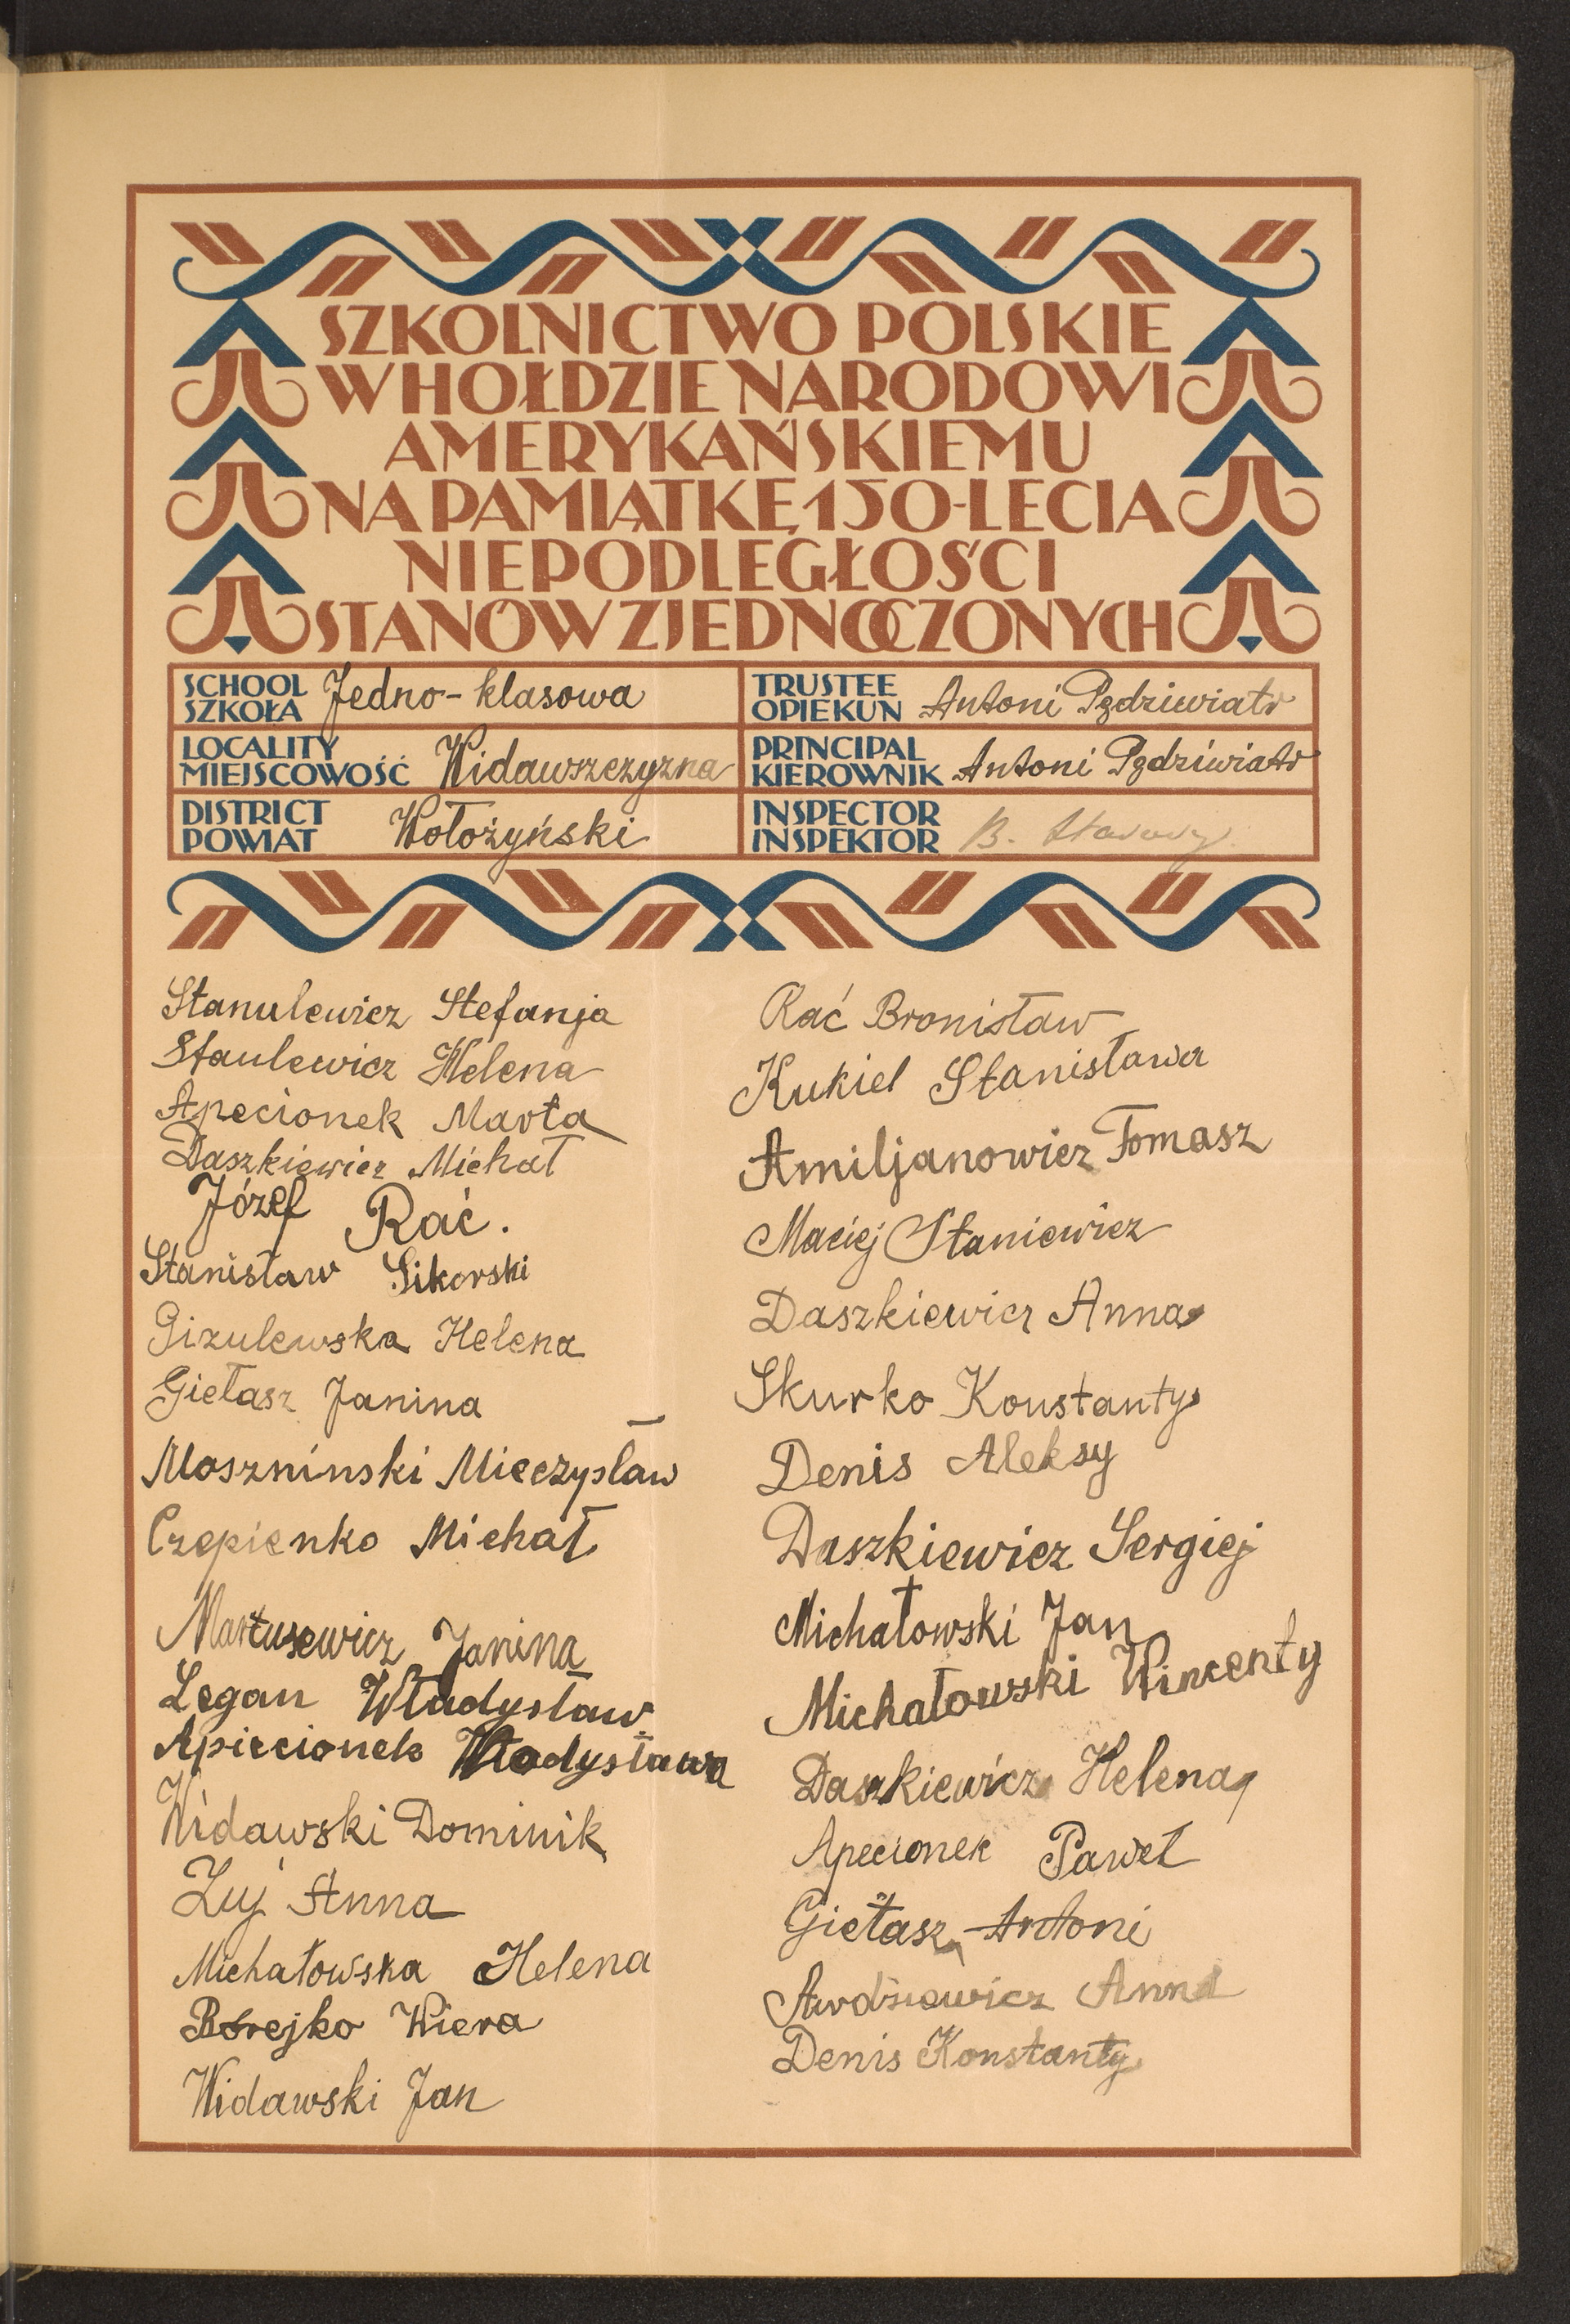 SZKOLNICTWO POLSKIE
W HOŁDZIE NARODOWI
AMERYKAŃSKIEMU
NA PAMIĄTKĘ 150-LECIA
NIEPODLEGŁOŚCI
STANÓW ZJEDNOCZONYCH
SCHOOL
SZKOŁA
Jedno-klasowa
TRUSTEE
OPIEKUN
Antoni Pędziwiatr
LOCALITY
MIEJSCOWOŚĆ
Widawszczyzna
PRINCIPAL
KIEROWNIK
Antoni Pędziwiatr
DISTRICT
POWIAT
Wołożyński
INSPECTOR
INSPEKTOR
B.
Stanulewicz Stefanja
Staulewicz Helena
Apecionek Marta
Daszkiewicz Michał
Józef Rać.
Stanisław Sikorski
Gizulewska Helena
Giełasz Janina
Mosznínski Mieczysław
Czepienko Michał
Martusewicz Janina
Legan Władysław
Apiecionek Władysława
Widawski Dominik
Żuj Anna
Michałowska Helena
Borejko Wiera
Widawski Jan
Rać Bronisław
Kukiel Stanisława
Amiljanowicz Tomasz
Maciej Staniewicz
Daszkiewicz Anna
Skurko Konstanty
Denis Aleksy
Daszkiewicz Sergiej
Michałowski Jan
Michałowski Wincenty
Daszkiewicz Helena
Apecionek Paweł
Giełasz Antoni
Awdziewicz Anna
Denis Konstanty